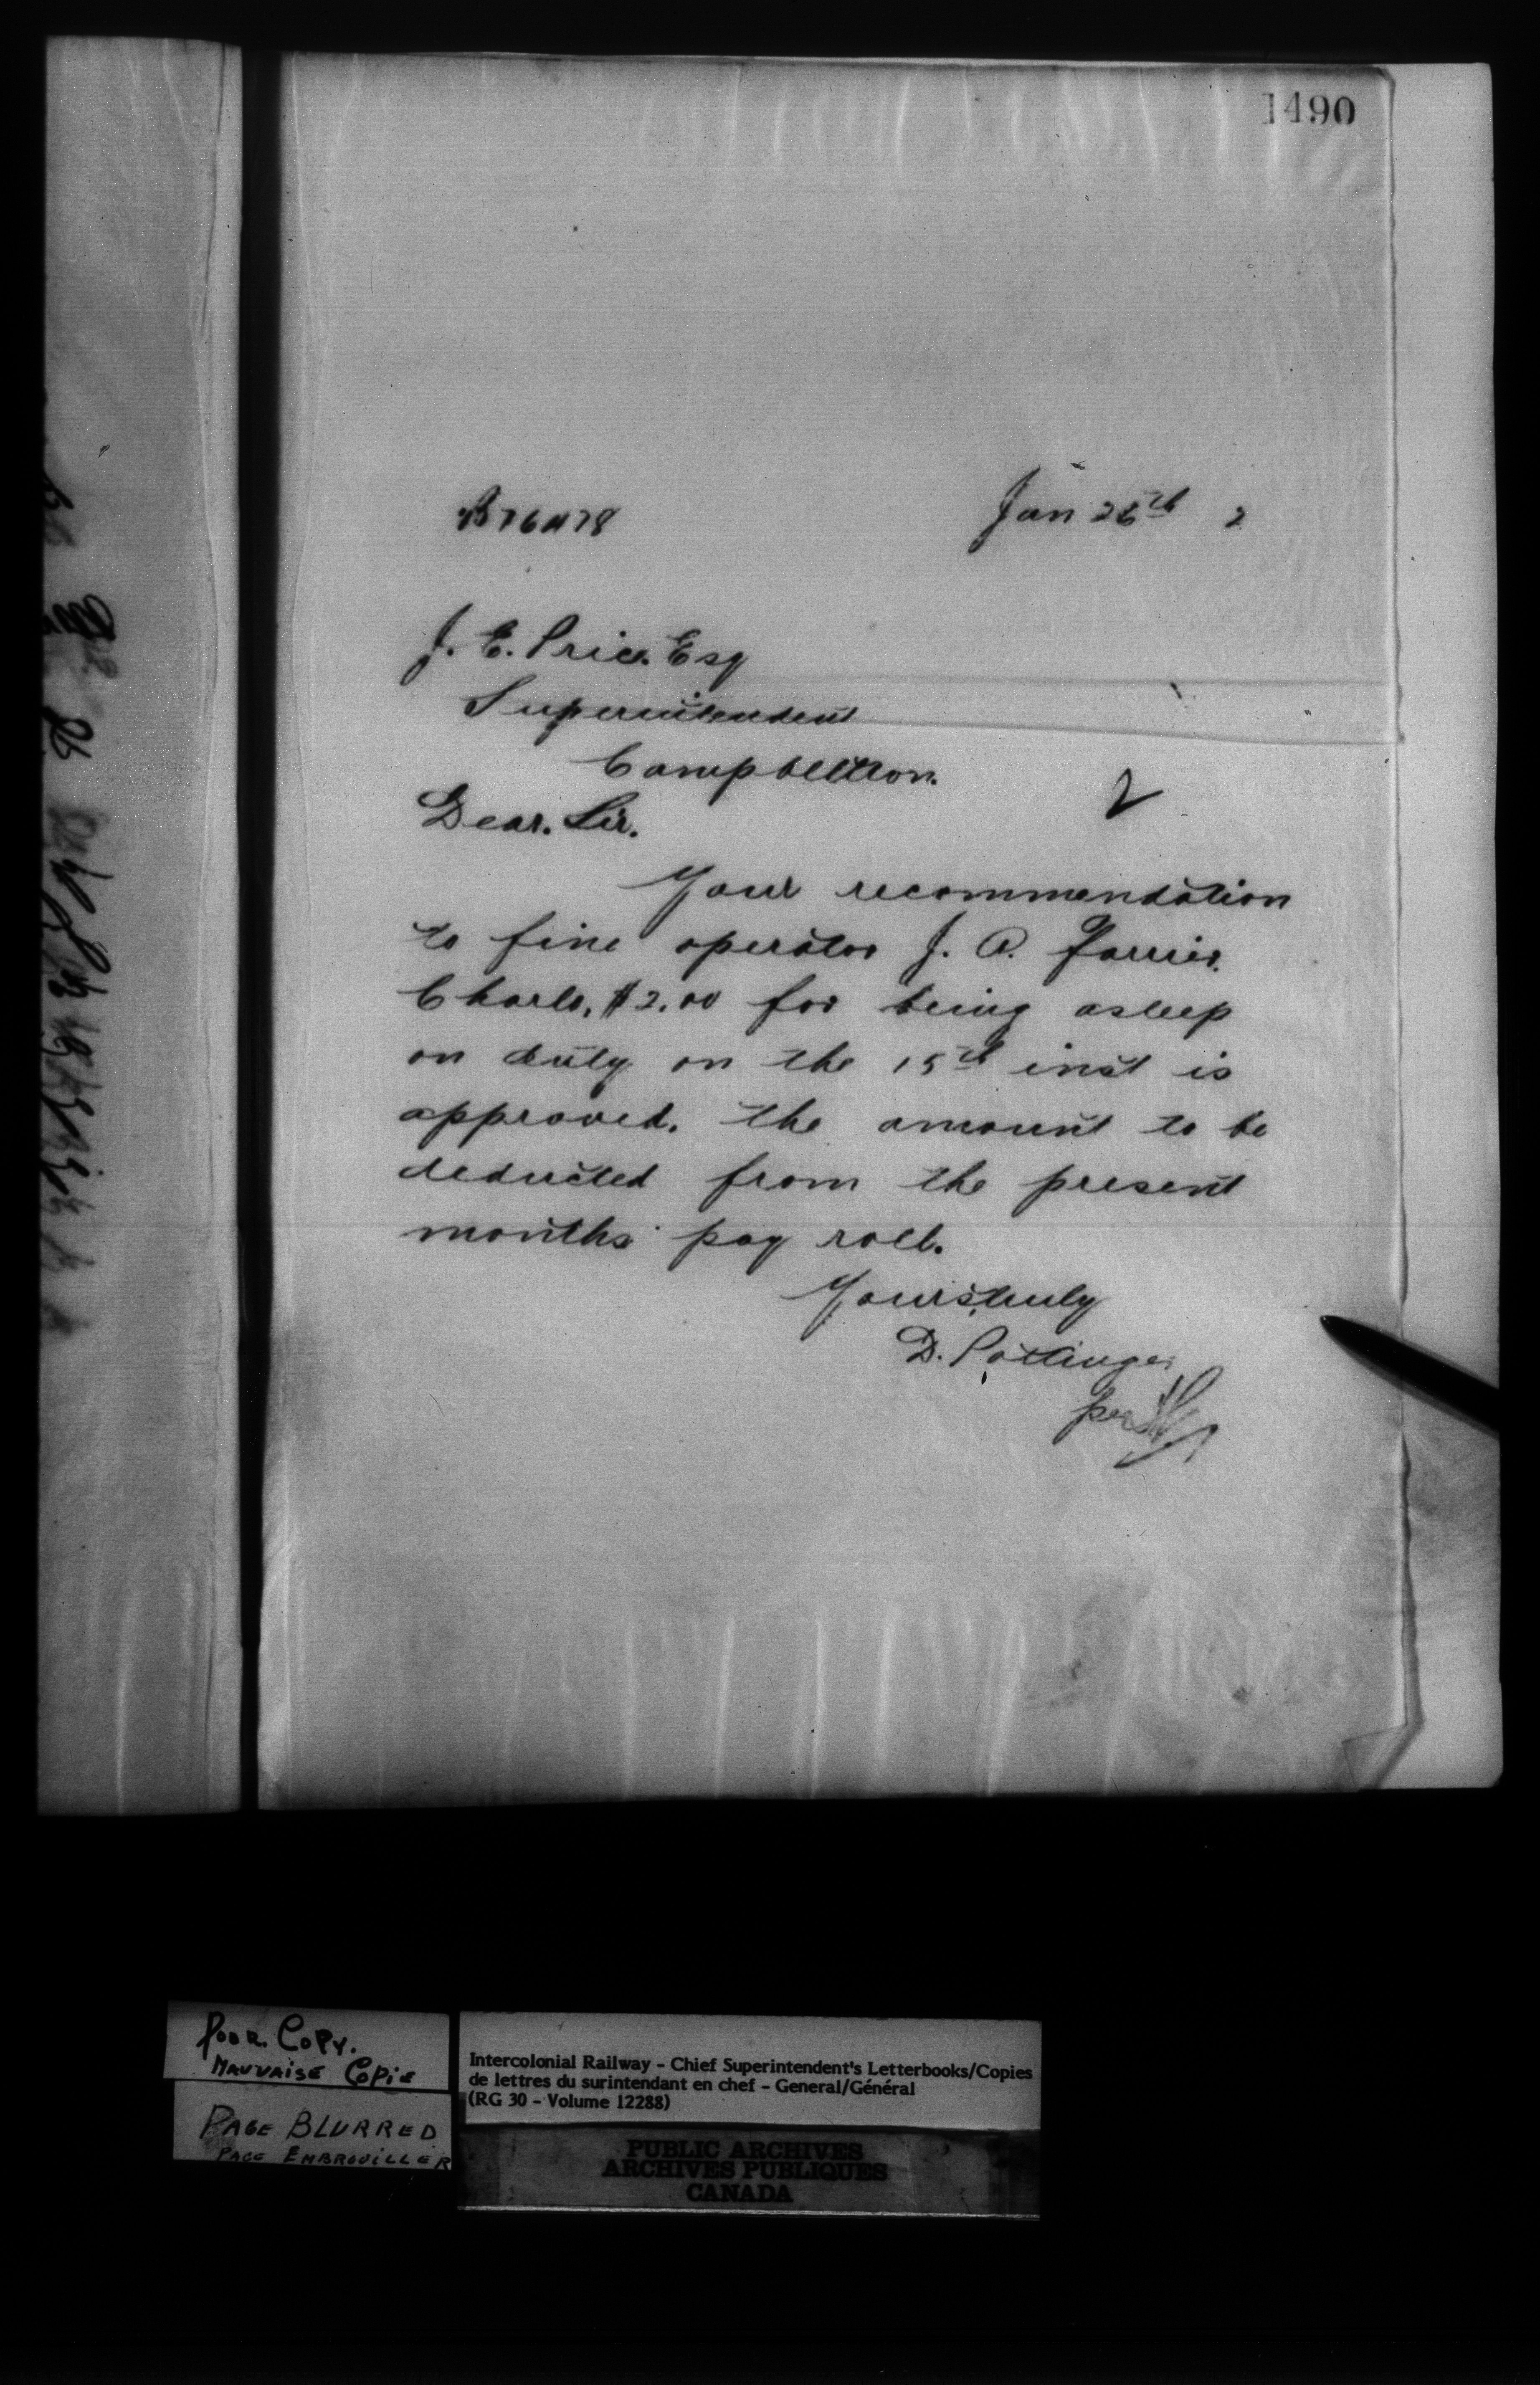 1490
Jan 26th 2
J. E. Price. Esq
Superintendent
Campbellton.
2
Dear. Sir.
Your recommendation
to fine operator J. A.
Charlo, $2.00 for being asleep
on duty on the 15th inst is
approved. the amount to be
deducted from the present
months pay roll.
Yours truly
D. Pottinger
per
Poor. Copy.
Mauvaise Copie
Page Blurred
Page Embrouiller
Intercolonial Railway - Chief Superintendent's Letterbooks/Copies
de lettres du surintendant en chef - General/Général
(RG 30 - Volume 12288)
PUBLIC ARCHIVES
ARCHIVES PUBLIQUES
CANADA